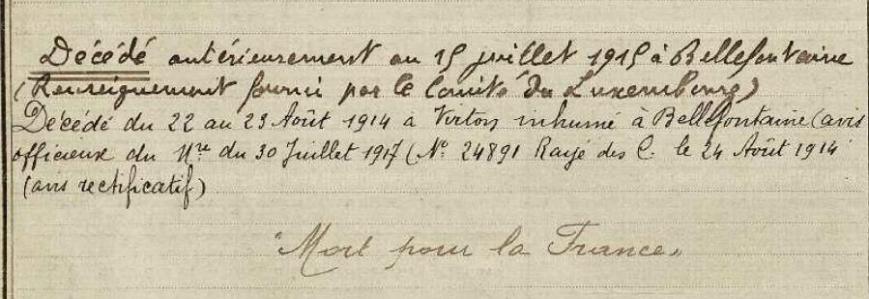 Décédé antérieurement au 15 juillet 1915 à Bellefontaine
(Renseignement fourni par le Comité du Luxembourg)
Décédé du 22 au 23 Août 1914 à Virton inhumé à Bellefontaine (avis
officieux du Mre du 30 Juillet 1917 (No 24891 Rayé des C. le 24 Août 1914
(avis rectificatif)
"Mort pour la France"